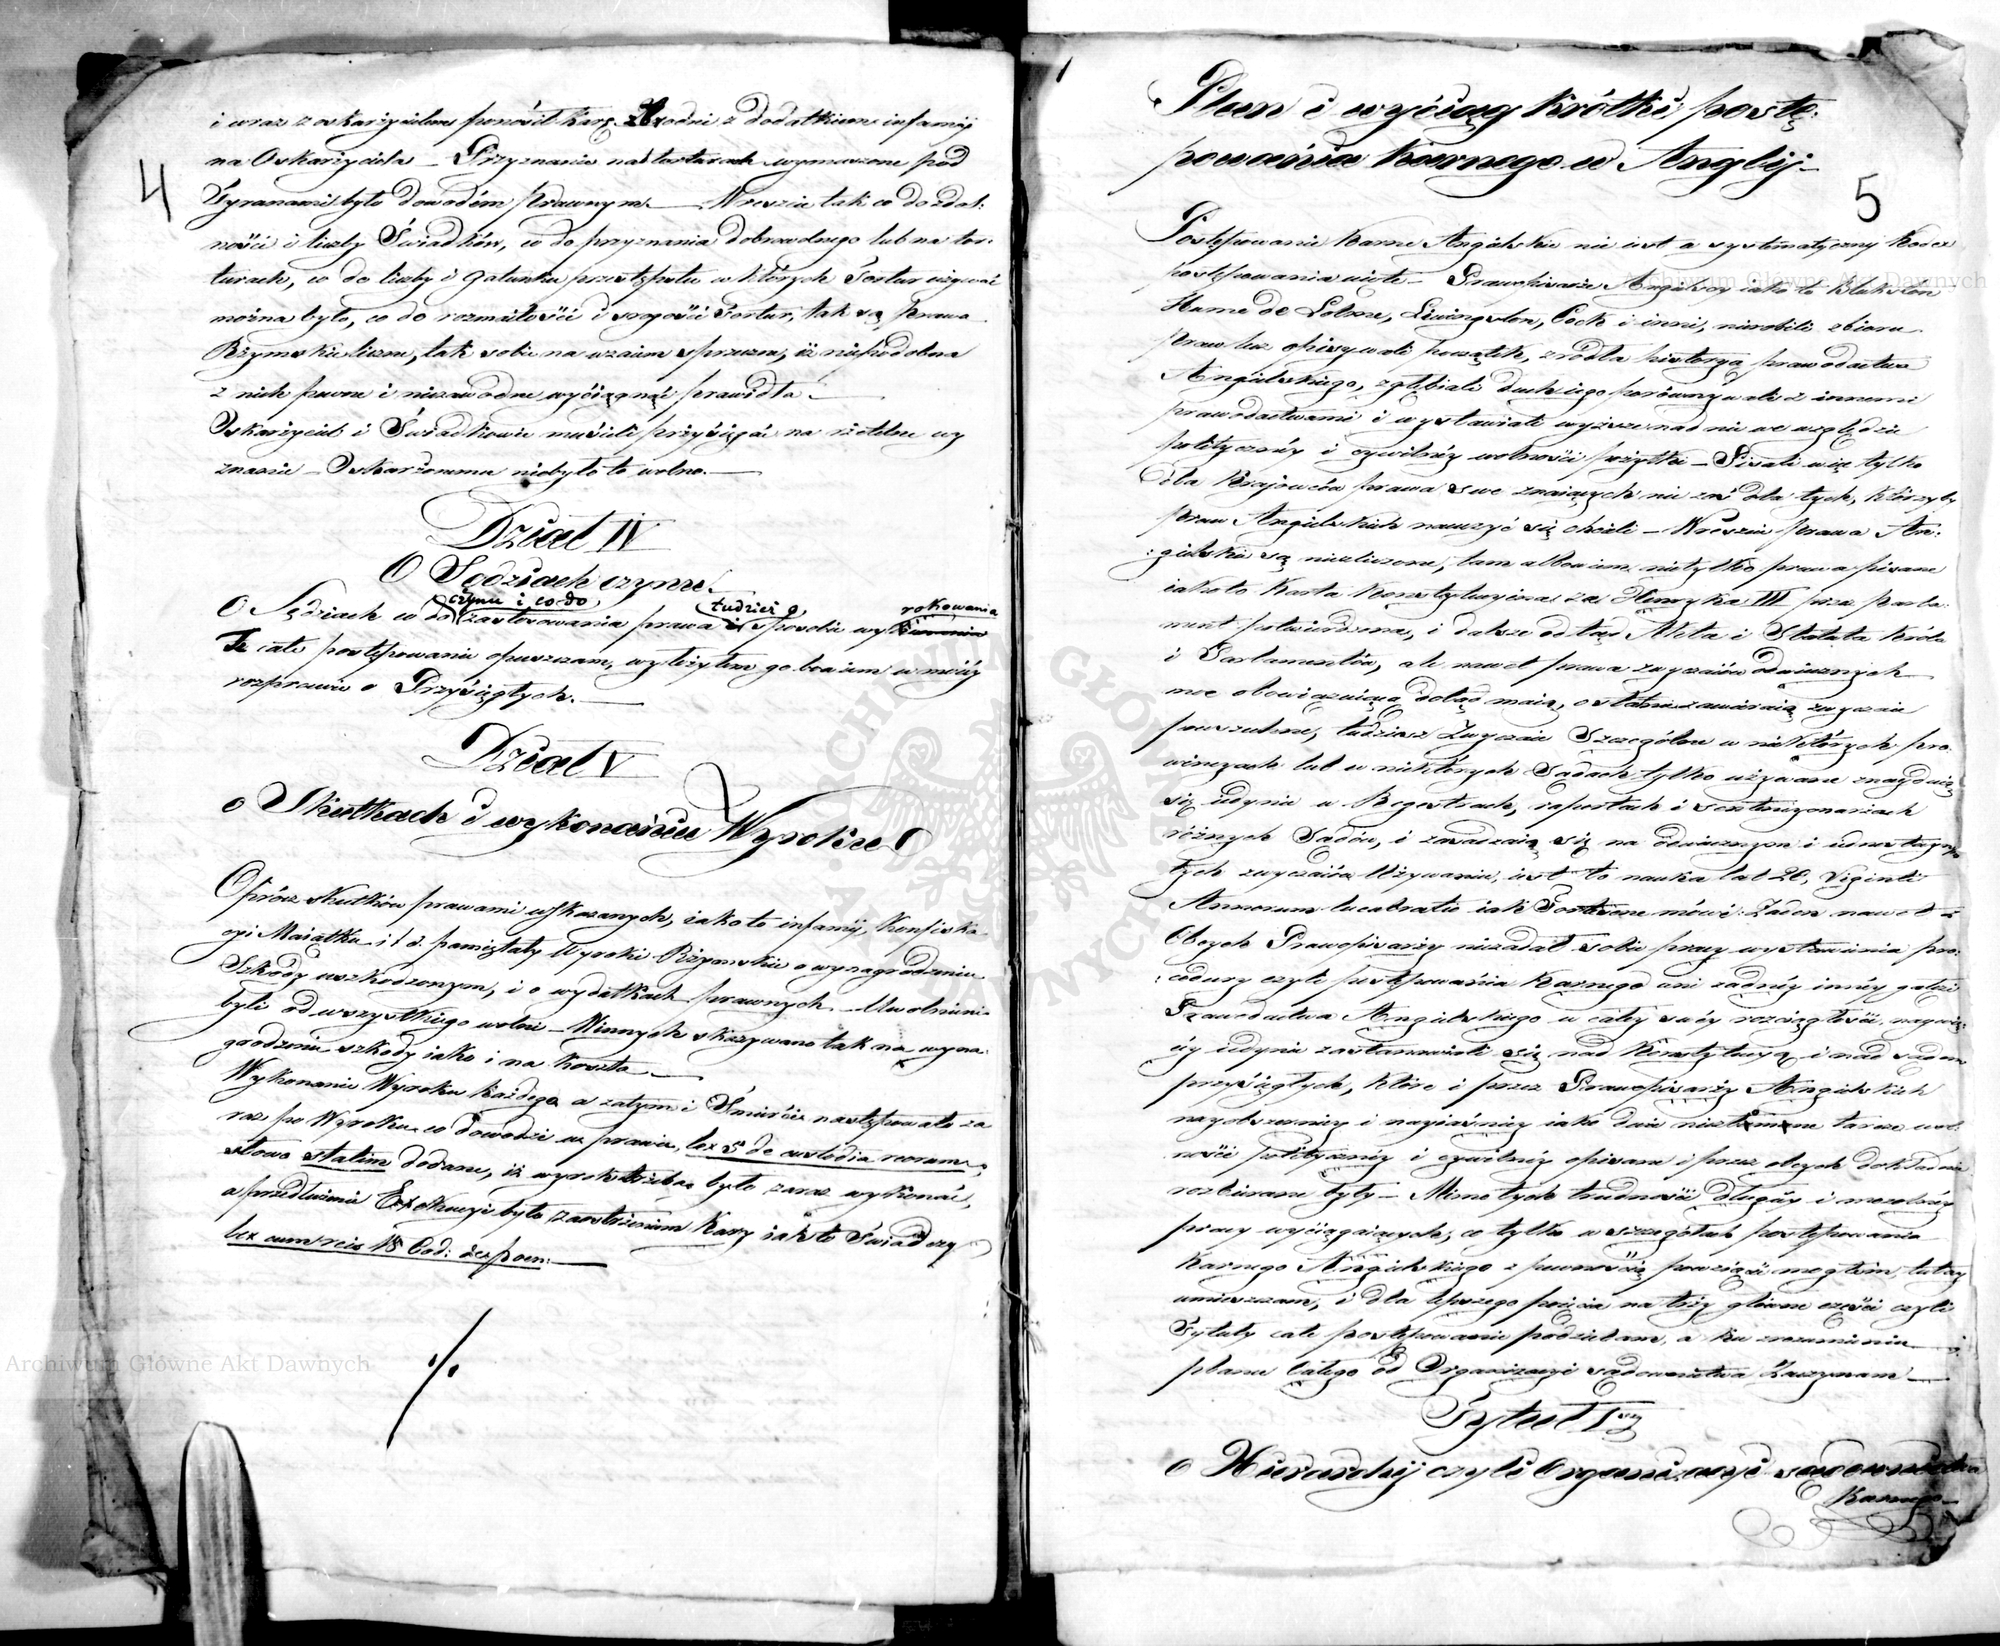 4
i wraz z oskarżycielem ponosił karę zbrodni z dodatkiem infamij
na Oskarżyciela – Przyznanie na torturach wymuszone pod
Tyranami było dowodem prawnym. – Wreszcie tak co do zdol:
ności i liczby Świadków, co do przyznania dobrowolnego lub na tor:
turach, co do liczby i gatunku przestępstw w których Tortur używać
można było, co do rozmaitości i srogości Tortur, tak są Prawa
Rzymskie liczne, tak sobie na wzaiem sprzeczne, iż niepodobna
z nich pewne i niezawodne wyciągnąć prawidła. –
Oskarżyciel i Świadkowie musieli przysięgać na rzetelne wy
znanie – Oskarżonemu niebyło to wolno. –
Dział IV
O Sędziach czynu.
czynu i co do tudzież o rokowania
O Sędziach co do zastosowania prawa i sposobie wy
Te całe postępowanie opuszczam, wyłożyłem go bowiem w moiéy
rozprawie o Przysięgłych. –
Dział V
o Skutkach i wykonaniu Wyroków
Oprócz skutków prawami wskazanych, iako to infamij, konfiska
cyi Maiątku i t d. pamiętały Wyroki Rzymskie o wynagrodzeniu
Szkody uszkodzonym, i o wydatkach prawnych – Uwolnieni
byli od wszystkiego wolni – Winnych skazywano tak na wyna:
grodzenie szkody iako i na koszta –
Wykonanie Wyroku każdego a zatym i Śmierci następowało za
raz po Wyroku co dowodzi w prawie, lex 5 de custodia reorum,
słowo statim dodane, iż wyrok trzeba było zaraz wykonać,
a przedłużenie Exekucyi było zaostrzeniem Kary iak to Świadczy
lex cum reis 18 Cod: de poen: –
Archiwum Główne Akt Dawnych
5
Plan i wyciąg krótki postę:
powania karnego w Anglij –
Postępowanie karne Angielskie nie iest w systematyczny kodex
postępowania uięte – Prawopisarze Angielscy iako to Blakston
Hume de Lolme, Liwingston, Cock i inni, nierobili zbioru
Praw lecz opisywali początek, źródła historyą prawodactwa
Angielskiego, zgłębiali duch iego porównywali z innemi
prawodactwami i wystawiali wyższe nad nie we względzie
politycznéy i cywilnéy wolności pożytki – Pisali więc tylko
dla Krajowców prawa swe znaiących nie zaś dla tych, którzyby
Praw Angielskich nauczyć się chcieli – Wreszcie prawa An:
:gielskie są niezliczone, tam albowiem nietylko prawa pisane
iako to Karta Konstytucyina za Henryka III przez Parla:
ment potwierdzona, i dalsze odtąd Akta i Statuta Króla
i Parlamentów, ale nawet prawa zwyczaiów odwiecznych
moc obowiązuiącą dotąd maią, ostatnie zawieraią zwyczaie
powszechne, tudzież Zwyczaie Szczególne w niektórych pro:
wincyach lub w niektórych Sądach tylko używane znayduią
się iedynie w Regestrach, raportach i sentencyonariach
różnych Sądów, i zasadzaią się na odwiecznym i
tych zwyczaiów Używaniu, iest to nauka lat 20, Viginti
Annorum lucubratio iak Fortescue mówi. Żaden nawet z
Obcych Prawopisarzy niezadał sobie pracy wystawienia pro:
:cedury czyli postępowania karnego ani żadnéy innéy gałęzi
Prawodactwa Angielskiego w całey swéy rozciągłości, naywię:
céy iedynie zastanawiali się nad Konstytucyą i nad sądem
przysięgłych, które i przez Prawopisarzy Angielskich
nayobszerniéy i nayiaśniéy iako dwie niezłomne tarcze wol:
ności politycznéy i cywilnéy opisane i przez obcych dokładnie
rozbierane były – Mimo tych trudności długiéy i mozolnéy
pracy wyciągaiących, co tylko w szczegółach postępowania
Karnego Angielskiego z pewnością powziąść mogłem, tutay
umieszczam, i dla lepszego poięcia na trzy główne części czyli
Tytuły całe postępowanie podzielam, a ku zrozumieniu
planu całego od Organizacyi sądownictwa Zaczynam –
Tytuł Iszy
o Hierarchij czyli Organizacyi sądownictwa
Karnego –
Archiwum Główne Akt Dawnych